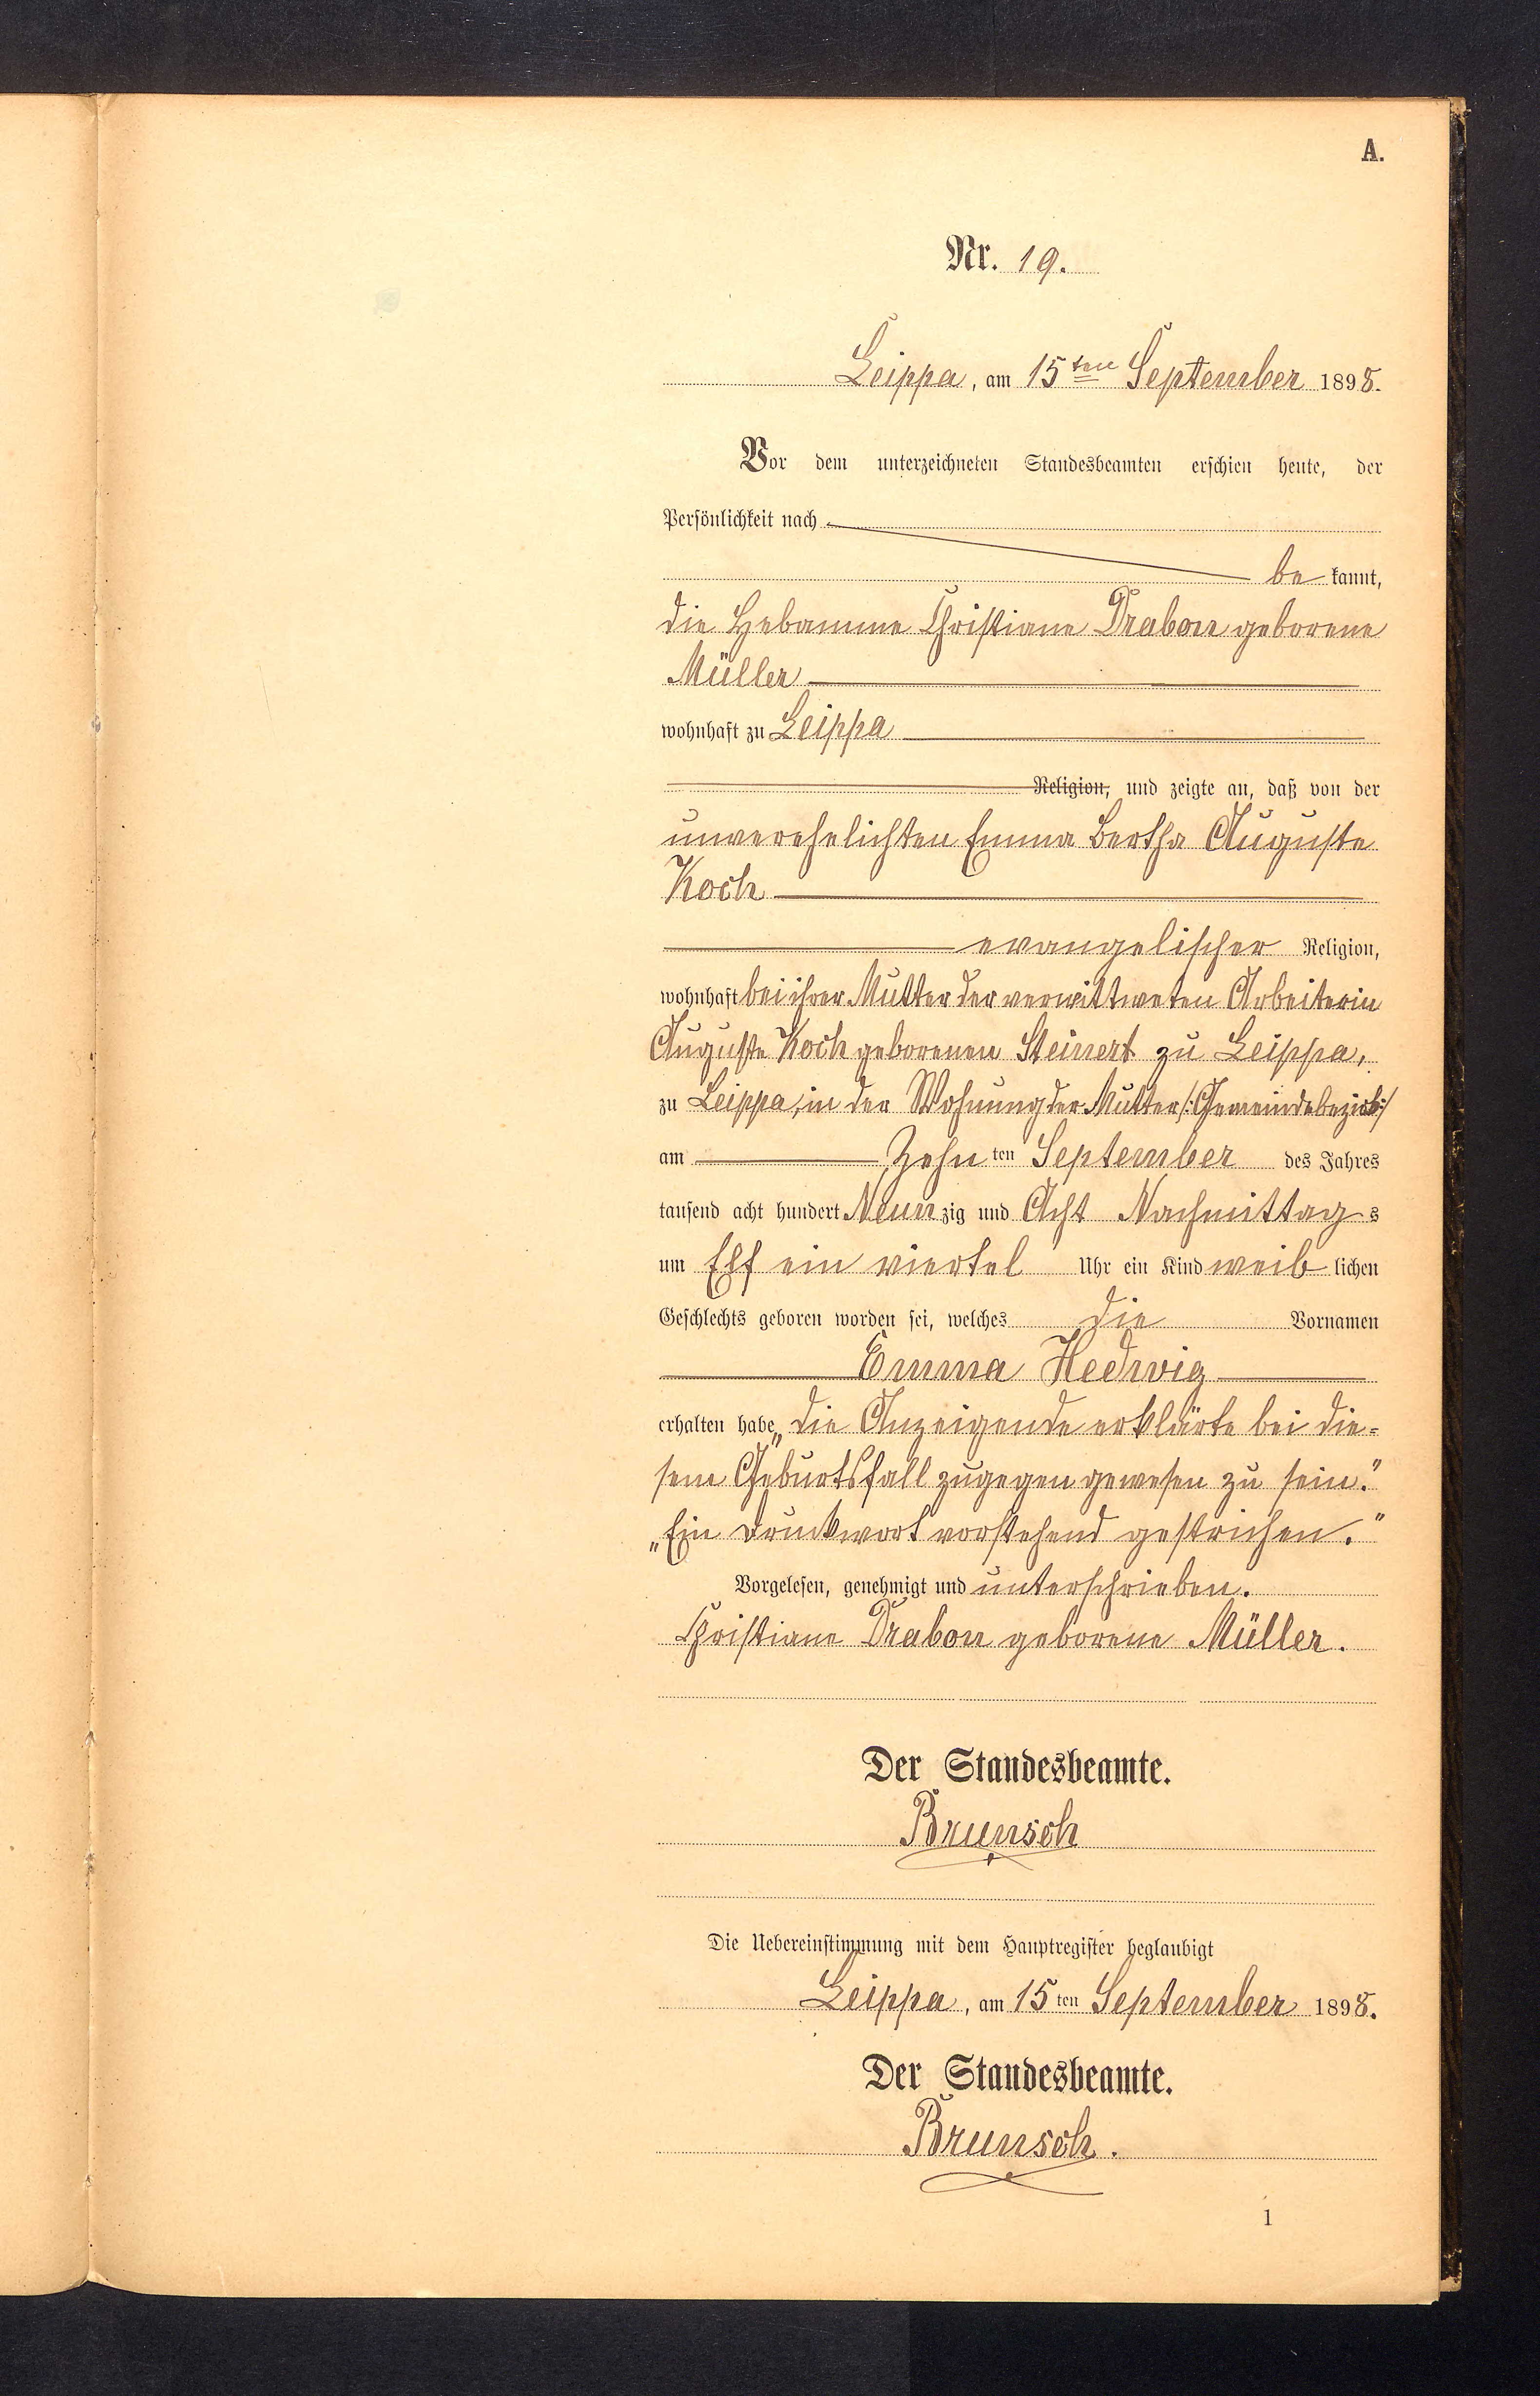 A.
Nr. 19.
Leippa, am 15ten September 1898.
Vor dem unterzeichneten Standesbeamten erschien heute, der
Persönlichkeit nach
be kannt,
die Hebamme Christiane Drabon geborene
Müller
wohnhaft zu Leippa
Religion, und zeigte an, daß von der
unverehelichten Emma Bertha Auguste
Koch
evangelischer Religion,
wohnhaft bei ihrer Mutter der verwittweten Arbeiterin
Auguste Koch geborenen Steinert zu Leippa,
zu Leippa, in der Wohnung der Mutter /:Gemeindebezirk:/
am Zehn ten September des Jahres
tausend acht hundert Neun zig und Acht Nachmittag s
um Elf ein viertel Uhr ein Kind weib lichen
Geschlechts geboren worden sei, welches die Vornamen
Emma Hedwig
erhalten habe „die Anzeigende erklärte bei die-
sem Geburtsfall zugegen gewesen zu sein."
„Ein Druckwort vorstehend gestrichen."
Vorgelesen, genehmigt und unterschrieben.
Christiane Drabon geborene Müller.
Der Standesbeamte.
Brunsch
Die Uebereinstimmung mit dem Hauptregister beglaubigt
Leippa, am 15 ten September 1898.
Der Standesbeamte.
Brunsch.
1